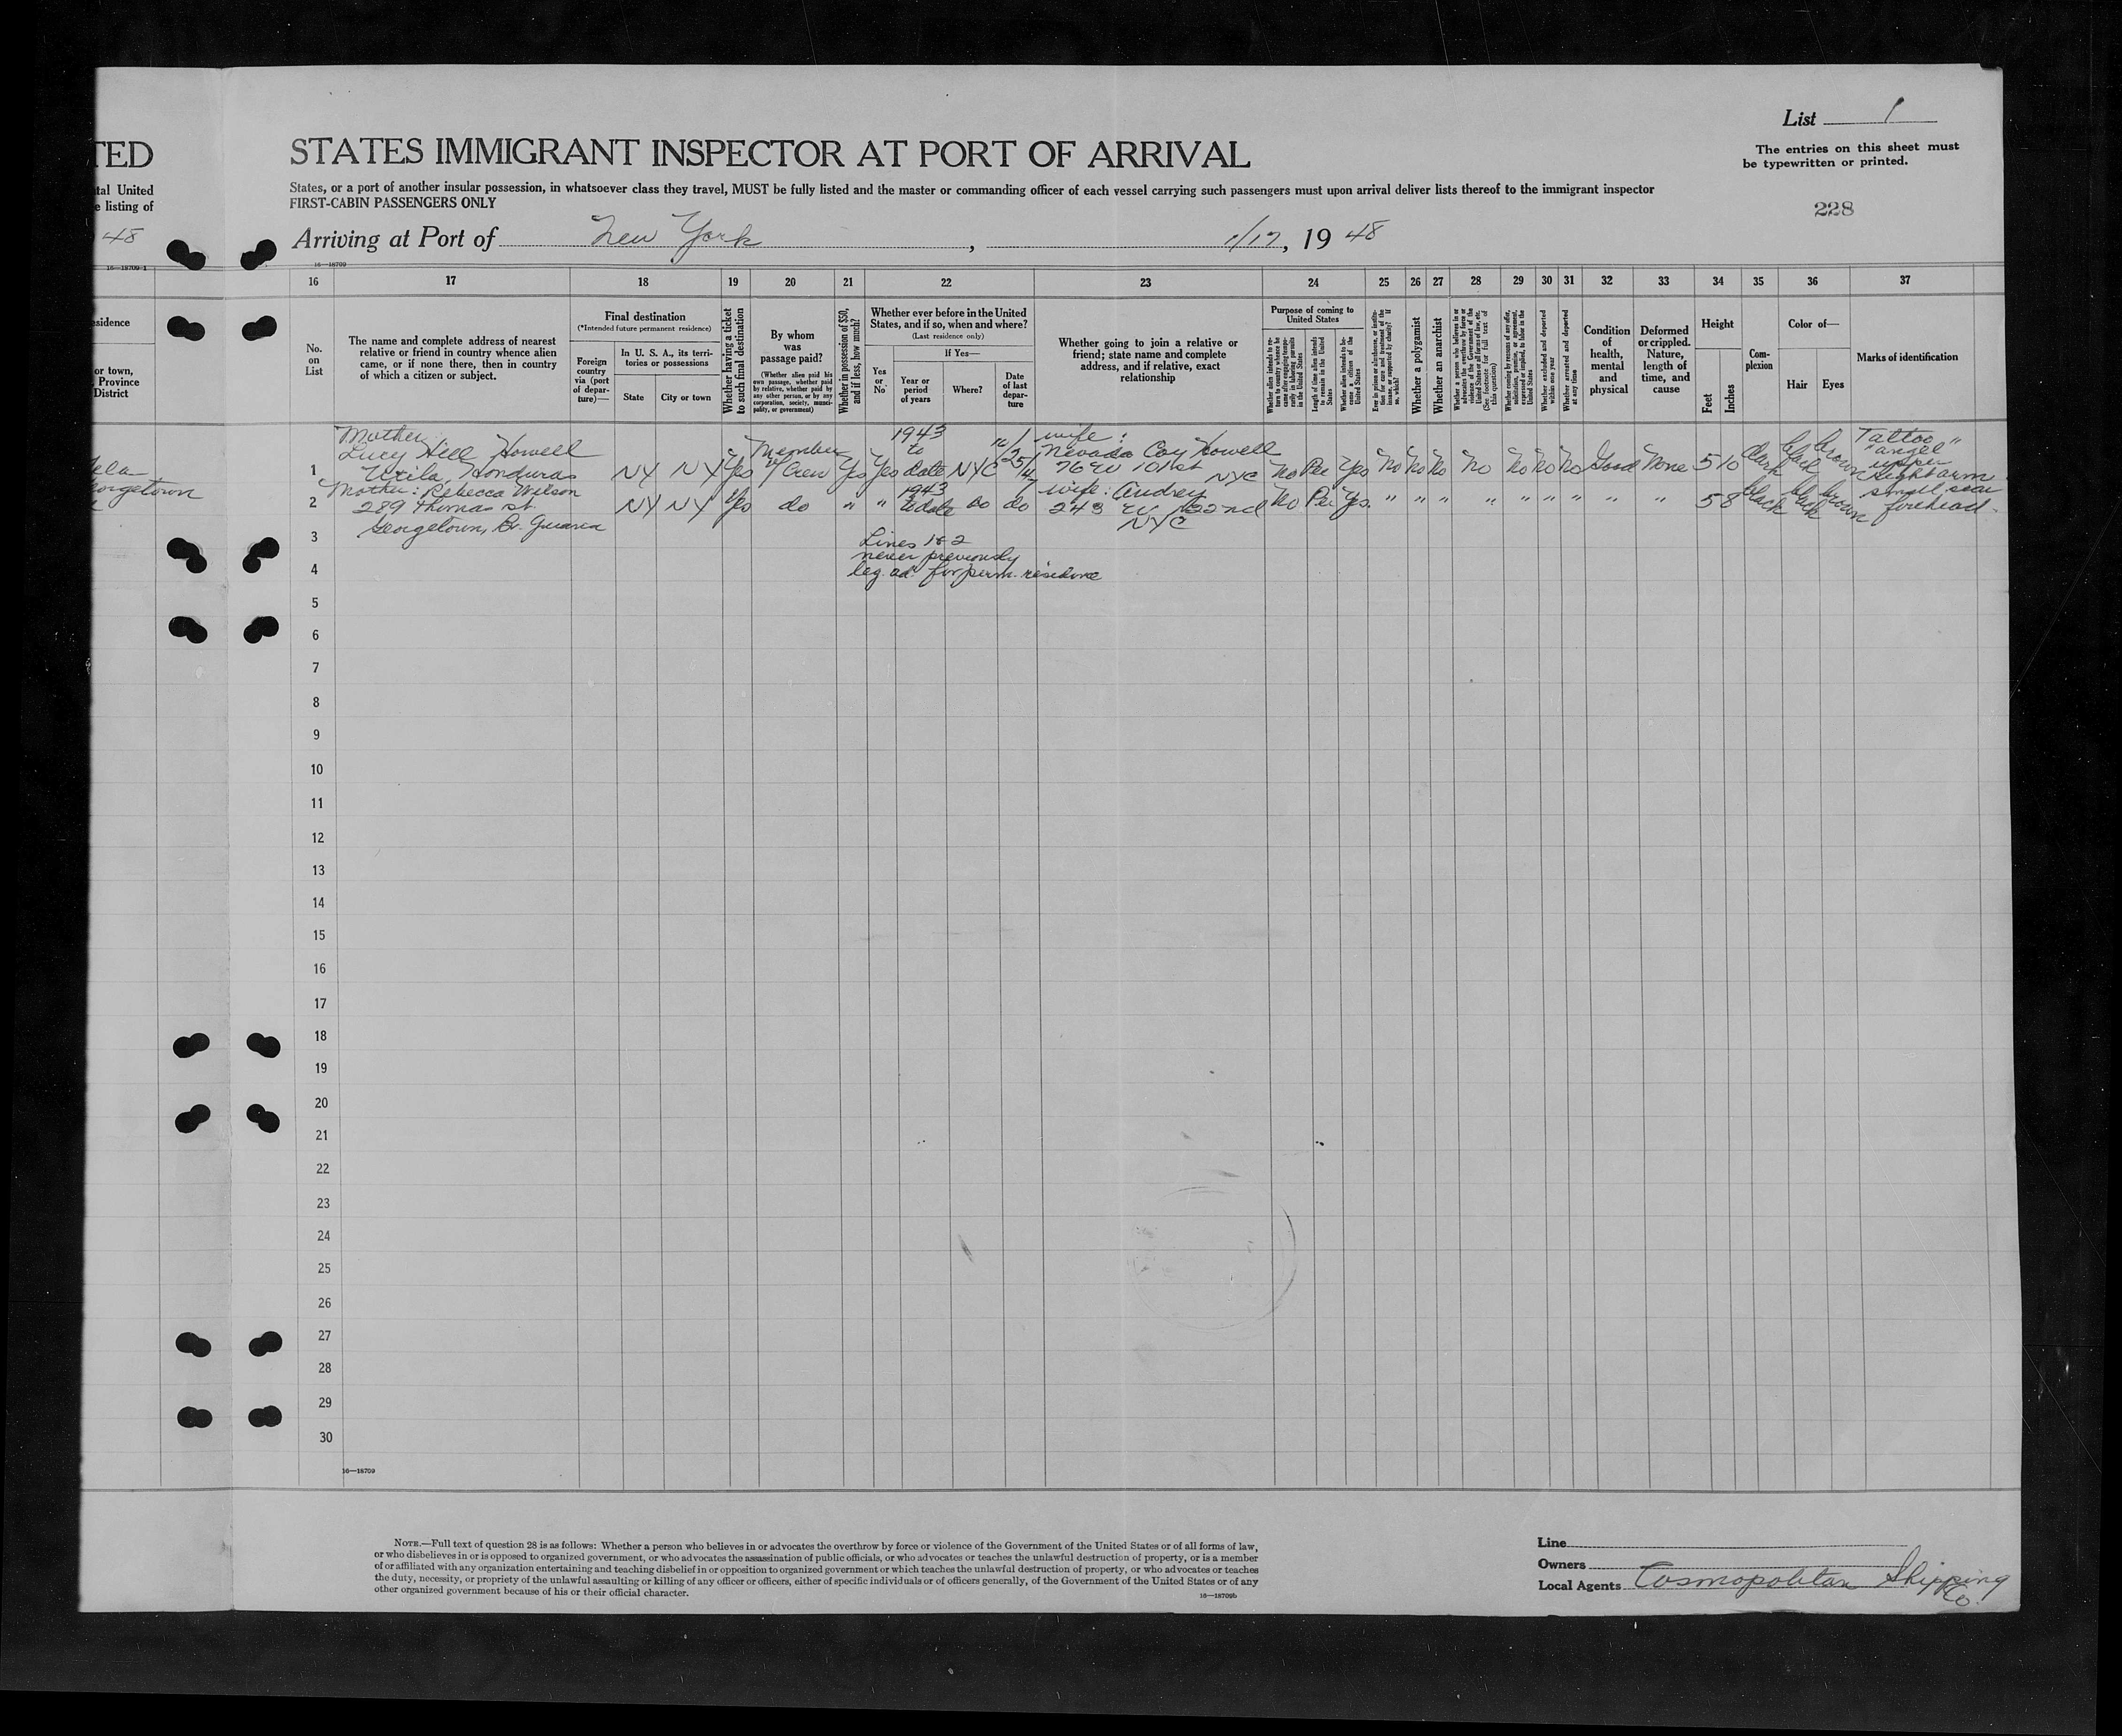 List 1
TED
STATES IMMIGRANT INSPECTOR AT PORT OF ARRIVAL
The entries on this sheet must
be typewritten or printed.
tal United
e listing of
States, or a port of another insular possession, in whatsoever class they travel, MUST be fully listed and the master or commanding officer of each vessel carrying such passengers must upon arrival deliver lists thereof to the immigrant inspector
FIRST-CABIN PASSENGERS ONLY
228
48
Arriving at Port of New York, 1/17, 19 48
16—18709-1
16—18709
16 17 18 19 20 21 22 23 24 25 26 27 28 29 30 31 32 33 34 35 36 37
esidence
or town,
Province
District
No.
on
List
The name and complete address of nearest
relative or friend in country whence alien
came, or if none there, then in country
of which a citizen or subject.
Final destination
(*Intended future permanent residence)
Foreign
country
via (port
of depar-
ture)—
In U. S. A., its terri-
tories or possessions
State
City or town
Whether having a ticket
to such final destination
By whom
was
passage paid?
(Whether alien paid his
own passage, whether paid
by relative, whether paid by
any other person, or by any
corporation, society, munici-
pality, or government)
Whether in possession of $50,
and if less, how much?
Whether ever before in the United
States, and if so, when and where?
(Last residence only)
Yes
or
No
If Yes—
Year or
period
of years
Where?
Date
of last
depar-
ture
Whether going to join a relative or
friend; state name and complete
address, and if relative, exact
relationship
Purpose of coming to
United States
Length of time alien intends
to remain in the United
States
Whether alien intends to be-
come a citizen of the
United States
Whether a polygamist
Whether an anarchist
Whether excluded and deported
within one year
Whether arrested and deported
at any time
Condition
of
health,
mental
and
physical
Deformed
or crippled.
Nature,
length of
time, and
cause
Height
Feet
Inches
Com-
plexion
Color of—
Hair
Eyes
Marks of identification
Mother:
Lucy Hill Howell
1 Utila, Honduras NY NY Yes Member of Crew Yes Yes 1943 to date NYC wife: Nevada Coy Howell 76 W 101st NYC No Per Yes No No No No No No No Good None 5 10 dark black brown Tattoo "angel" upper right arm
orgetown
Mother: Rebecca Wilson
2 289 Thomas St. NY NY Yes do " " 1943 to date do do wife: Audrey 243 W 122nd NYC No Per Yes. " " " " " " " " " 5 8 black black brown small scar forehead.
Georgetown, Br. Guiana
3
Lines 1 & 2
never previously
4
leg. ad. for perm. residence
5
6
7
8
9
10
11
12
13
14
15
16
17
18
19
20
21
22
23
24
25
26
27
28
29
30
16—18709
NOTE.—Full text of question 28 is as follows: Whether a person who believes in or advocates the overthrow by force or violence of the Government of the United States or of all forms of law,
or who disbelieves in or is opposed to organized government, or who advocates the assassination of public officials, or who advocates or teaches the unlawful destruction of property, or is a member
of or affiliated with any organization entertaining and teaching disbelief in or opposition to organized government or which teaches the unlawful destruction of property, or who advocates or teaches
the duty, necessity, or propriety of the unlawful assaulting or killing of any officer or officers, either of specific individuals or of officers generally, of the Government of the United States or of any
other organized government because of his or their official character.
16—18709b
Line
Owners
Local Agents Cosmopolitan Shipping Co.